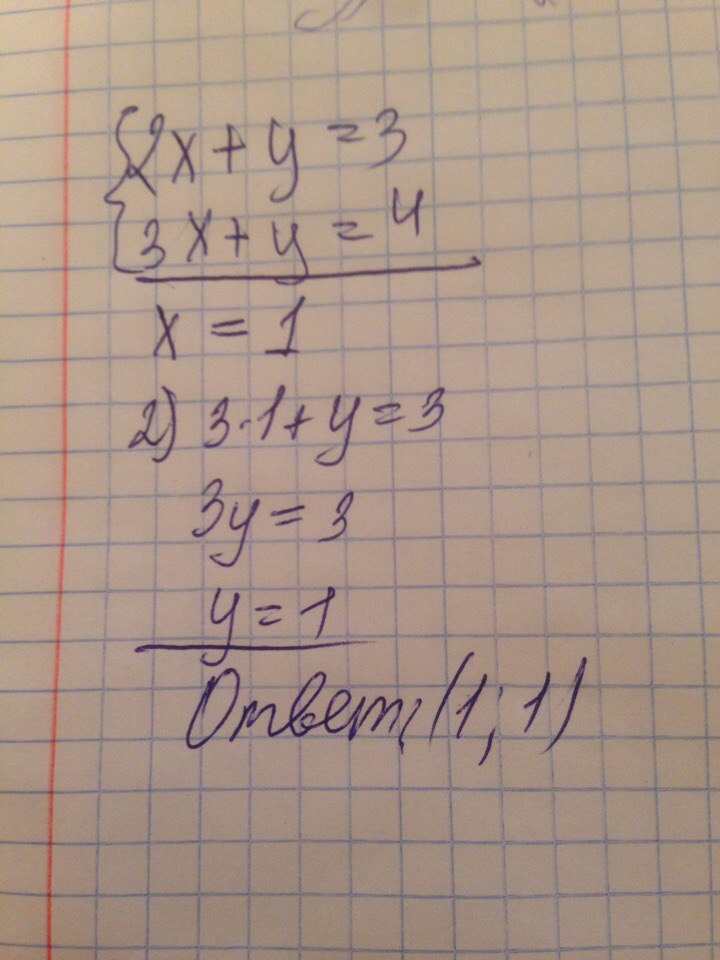 {2x+y=3
3x+y=4
x=1
2) 3·1+y=3
3y=3
y=1
Ответ: (1; 1)